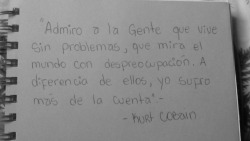 "Admiro a la Gente que vive
sin problemas, que mira el
mundo con despreocupación. A
diferencia de ellos, yo sufro
más de la cuenta" -
- Kurt Cobain